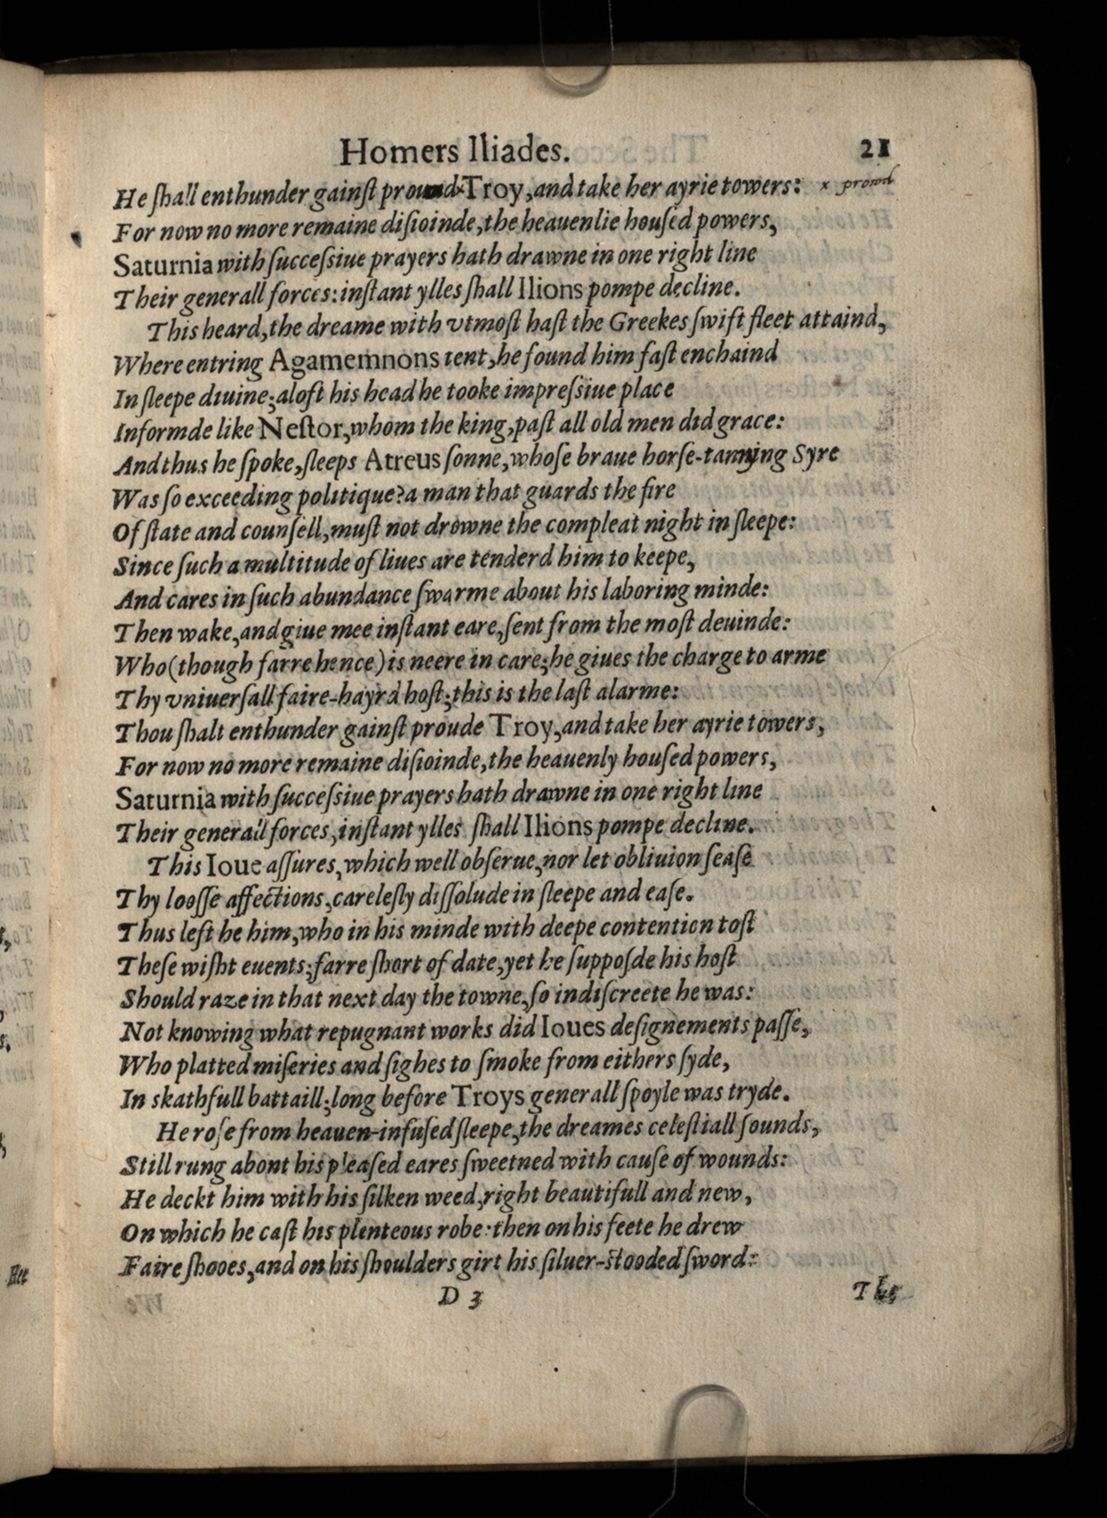 Homers Iliades. 21
He ſhall enthunder gainſt proud Troy, and take her ayrie towers: x proud
For now no more remaine diſioinde, the heauenlie houſed powers,
Saturnia with ſucceſsiue prayers hath drawne in one right line
Their generall forces: inſtant ylles ſhall Ilions pompe decline.
This heard, the dreame with vtmoſt haſt the Greekes ſwift fleet attaind,
Where entring Agamemnons tent, he found him faſt enchaind
In ſleepe diuine; aloft his head he tooke impreſsiue place
Informde like Neſtor, whom the king, paſt all old men did grace:
And thus he ſpoke, ſleeps Atreus ſonne, whoſe braue horſe-tamyng Syre
Was ſo exceeding politique? a man that guards the fire
Of ſtate and counſell, muſt not drowne the compleat night in ſleepe:
Since ſuch a multitude of liues are tenderd him to keepe,
And cares in ſuch abundance ſwarme about his laboring minde:
Then wake, and giue mee inſtant eare, ſent from the moſt deuinde:
Who (though farre hence) is neere in care; he giues the charge to arme
Thy vniuerſall faire-hayrd hoſt; this is the laſt alarme:
Thou ſhalt enthunder gainſt proude Troy, and take her ayrie towers,
For now no more remaine diſioinde, the heauenly houſed powers,
Saturnia with ſucceſsiue prayers hath drawne in one right line
Their generall forces, inſtant ylles ſhall Ilions pompe decline.
This Ioue aſſures, which well obſerue, nor let obliuion ſeaſe
Thy looſſe affections, careleſly diſſolude in ſleepe and eaſe.
Thus left he him, who in his minde with deepe contention toſt
Theſe wiſht euents; farre ſhort of date, yet he ſuppoſde his hoſt
Should raze in that next day the towne, ſo indiſcreete he was:
Not knowing what repugnant works did Ioues deſignements paſſe,
Who platted miſeries and ſighes to ſmoke from eithers ſyde,
In skathfull battaill; long before Troys generall ſpoyle was tryde.
He roſe from heauen-infuſed ſleepe, the dreames celeſtiall ſounds,
Still rung abont his pleaſed eares ſweetned with cauſe of wounds:
He deckt him with his ſilken weed, right beautifull and new,
On which he caſt his plenteous robe: then on his feete he drew
Faire ſhooes, and on his ſhoulders girt his ſiluer-ſtooded ſword:
D 3